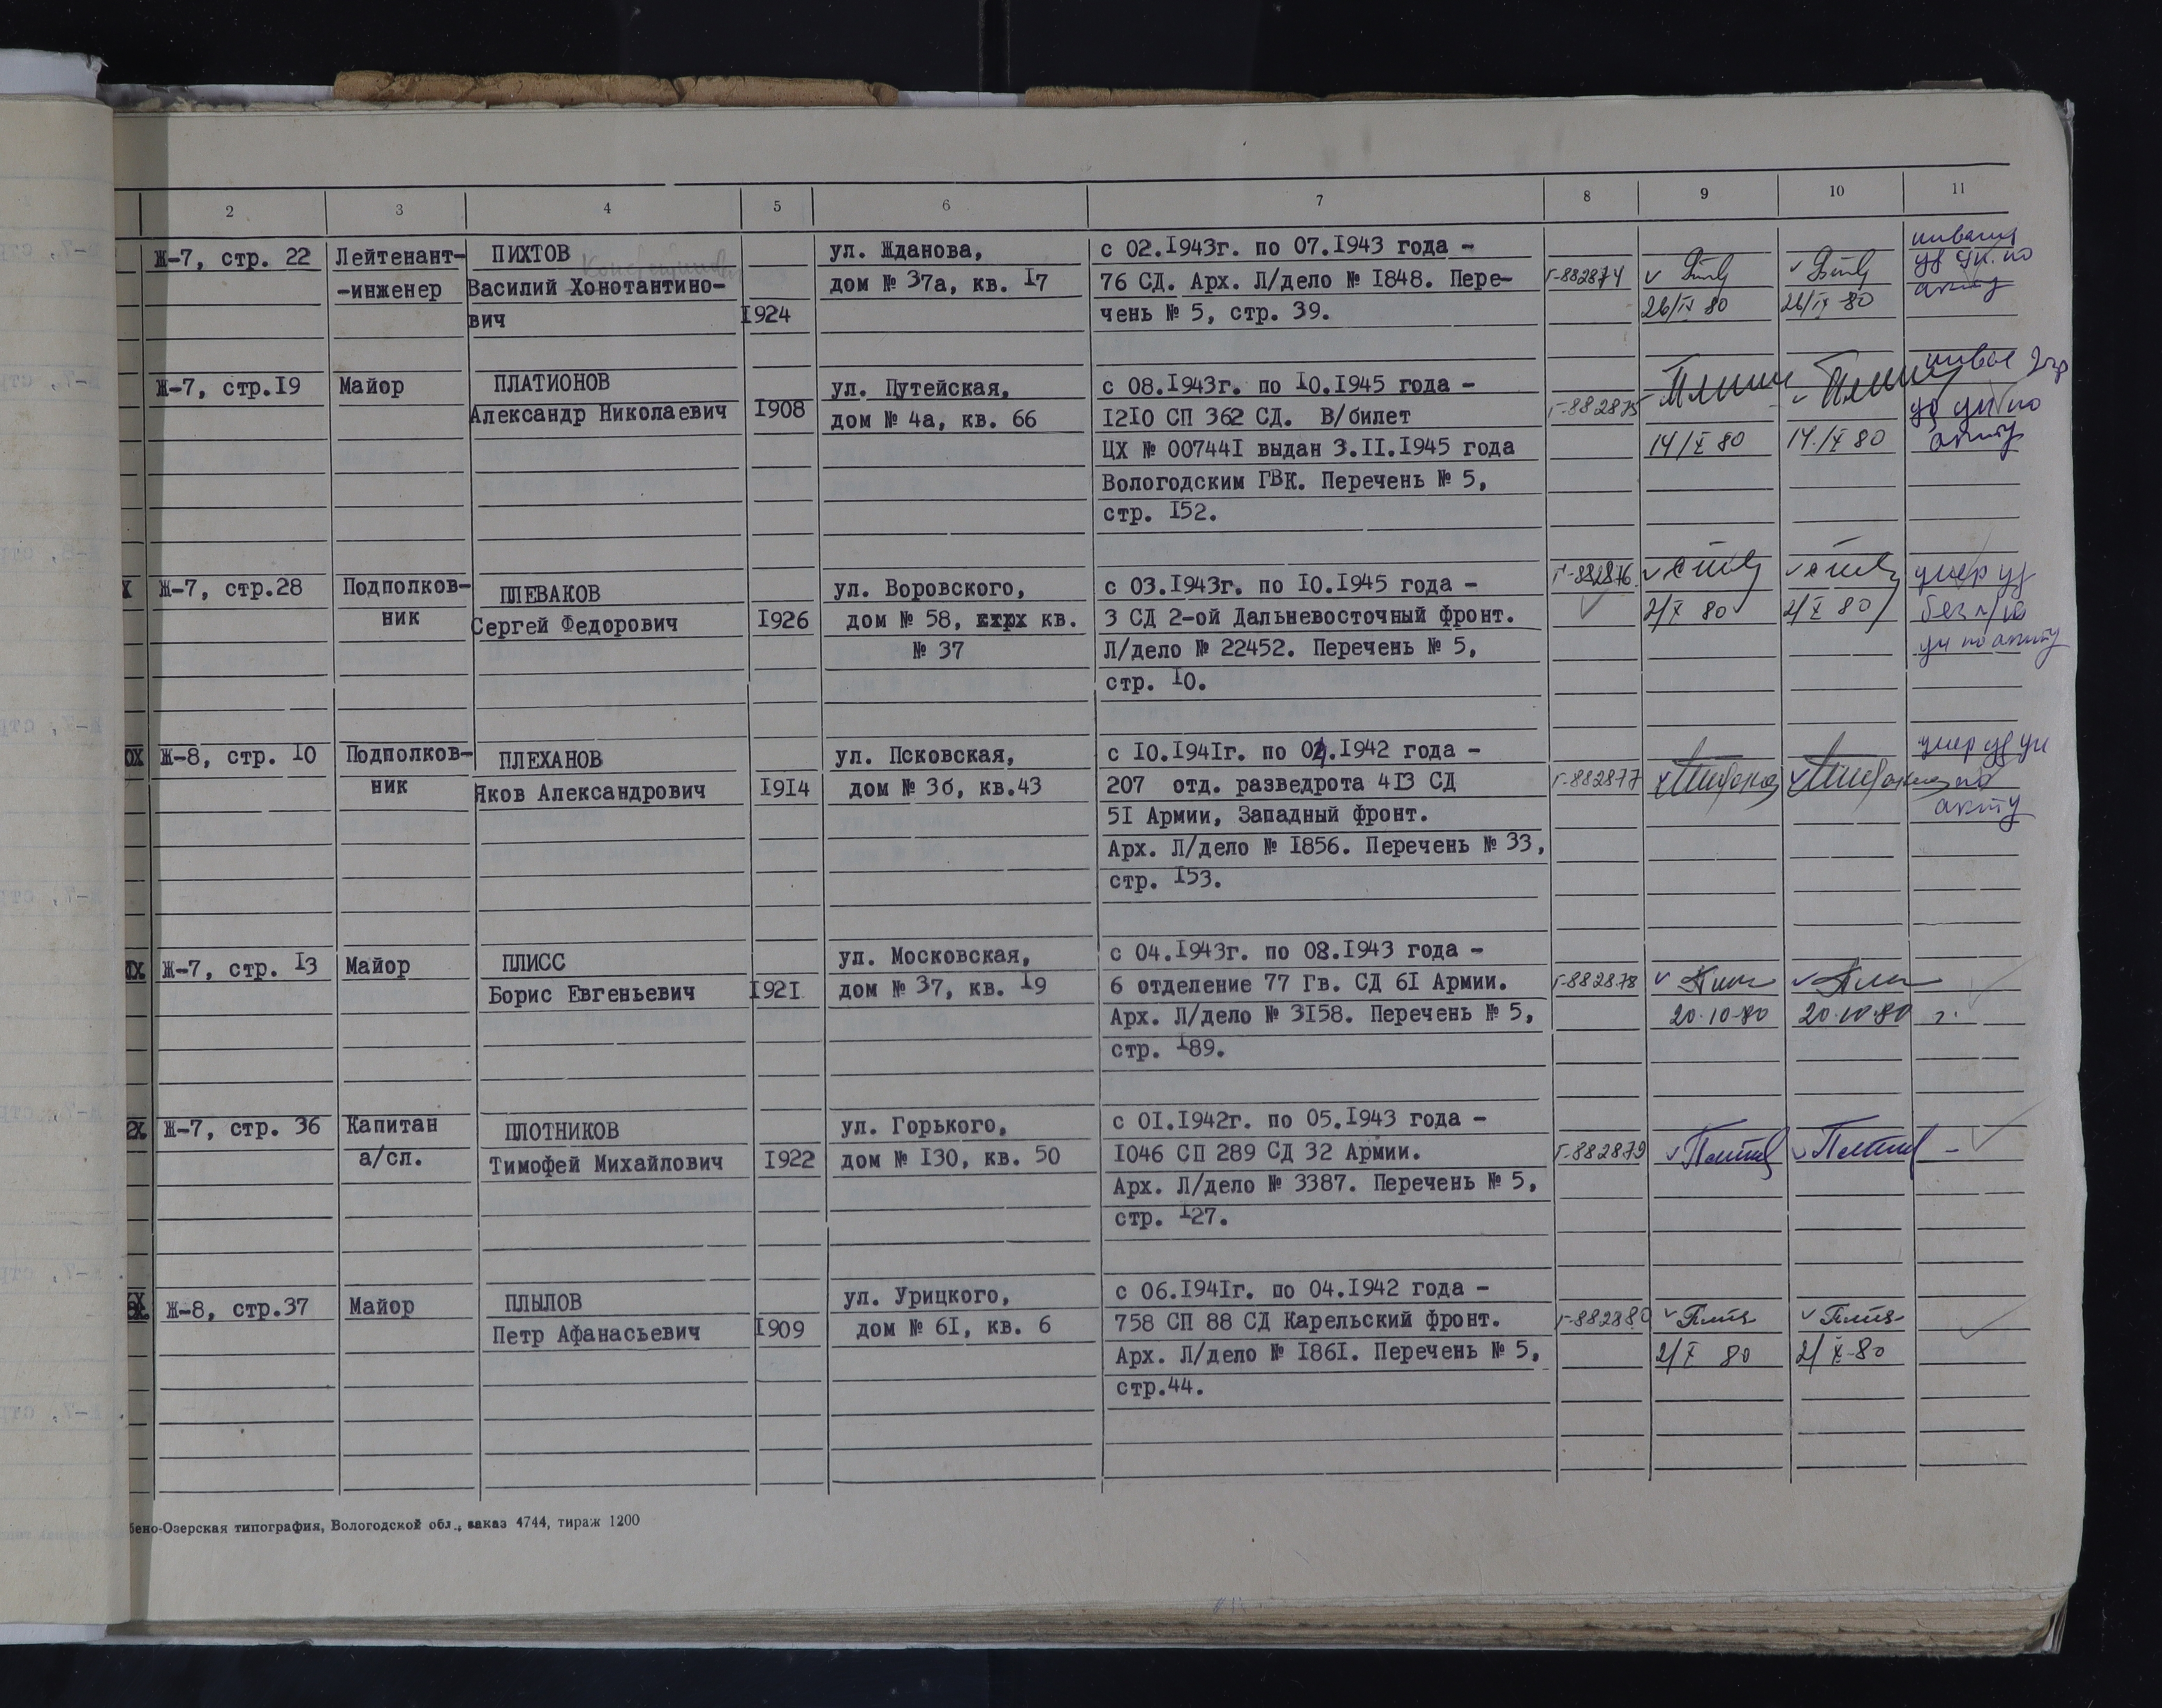 2 3 4 5 6 7 8 9 10 11
Ж-7, стр. 22 Лейтенант- ПИХТОВ ул. Жданова, с 02.1943г. по 07.1943 года -
-инженер Василий Хонотантино- дом № 37а, кв. 17 76 СД. Арх. Л/дело № 1848. Пере- Г-882874
вич 1924 чень № 5, стр. 39. 26/IX 80 26/IX 80
акту
Ж-7, стр.19 Майор ПЛАТИОНОВ ул. Путейская, с 08.1943г. по 10.1945 года -
Александр Николаевич 1908 дом № 4а, кв. 66 1210 СП 362 СД. В/билет Г-882875
ЦХ № 007441 выдан 3.II.1945 года 14/X 80 14/X 80 акту
Вологодским ГВК. Перечень № 5,
стр. 152.
Ж-7, стр.28 Подполков- ПЛЕВАКОВ ул. Воровского, с 03.1943г. по 10.1945 года - Г-882876 умер уд
ник Сергей Федорович 1926 дом № 58, кв. 3 СД 2-ой Дальневосточный фронт. 2/X 80 2/X 80
№ 37 Л/дело № 22452. Перечень № 5, уч по акту
стр. 10.
Ж-8, стр. 10 Подполков- ПЛЕХАНОВ ул. Псковская, с 10.1941г. по 04.1942 года - умер уд уч
ник Яков Александрович 1914 дом № 3б, кв.43 207 отд. разведрота 413 СД Г-882877 по
51 Армии, Западный фронт. акту
Арх. Л/дело № 1856. Перечень № 33,
стр. 153.
Ж-7, стр. 13 Майор ПЛИСС ул. Московская, с 04.1943г. по 08.1943 года -
Борис Евгеньевич 1921 дом № 37, кв. 19 6 отделение 77 Гв. СД 61 Армии. Г-882878
Арх. Л/дело № 3158. Перечень № 5, 20.10.80 20.10.80 г.
стр. 189.
Ж-7, стр. 36 Капитан ПЛОТНИКОВ ул. Горького, с 01.1942г. по 05.1943 года -
а/сл. Тимофей Михайлович 1922 дом № 130, кв. 50 1046 СП 289 СД 32 Армии. Г-882879 -
Арх. Л/дело № 3387. Перечень № 5,
стр. 127.
Ж-8, стр.37 Майор ПЛЫЛОВ ул. Урицкого, с 06.1941г. по 04.1942 года -
Петр Афанасьевич 1909 дом № 61, кв. 6 758 СП 88 СД Карельский фронт. Г-882880
Арх. Л/дело № 1861. Перечень № 5, 2/X 80 2/X-80
стр.44.
бено-Озерская типография, Вологодской обл., заказ 4744, тираж 1200